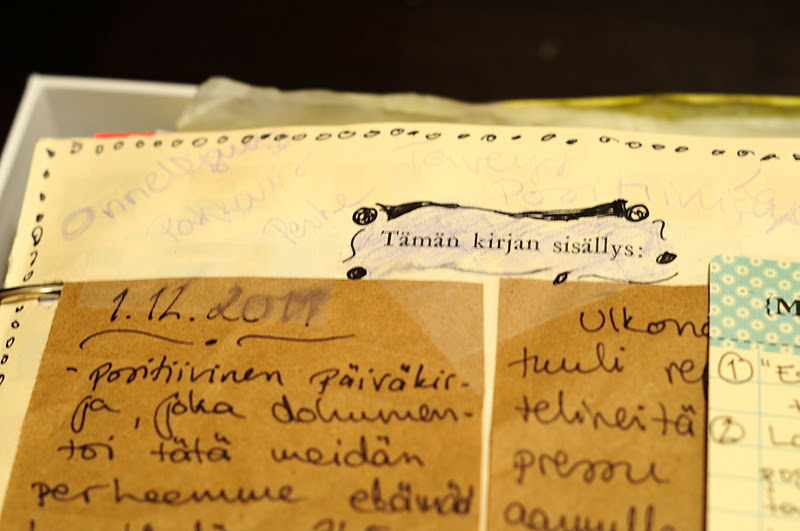 Onnellisuus Terveys
Rakkaus Perhe Positiivisuus
Tämän kirjan sisällys:
1.12.2011
- positiivinen päiväkir-
ja, joka dokumen-
toi tätä meidän
perheemme elämää
Ulkona
tuuli
telineitä
pressu
aamulla
{M
① "E
②